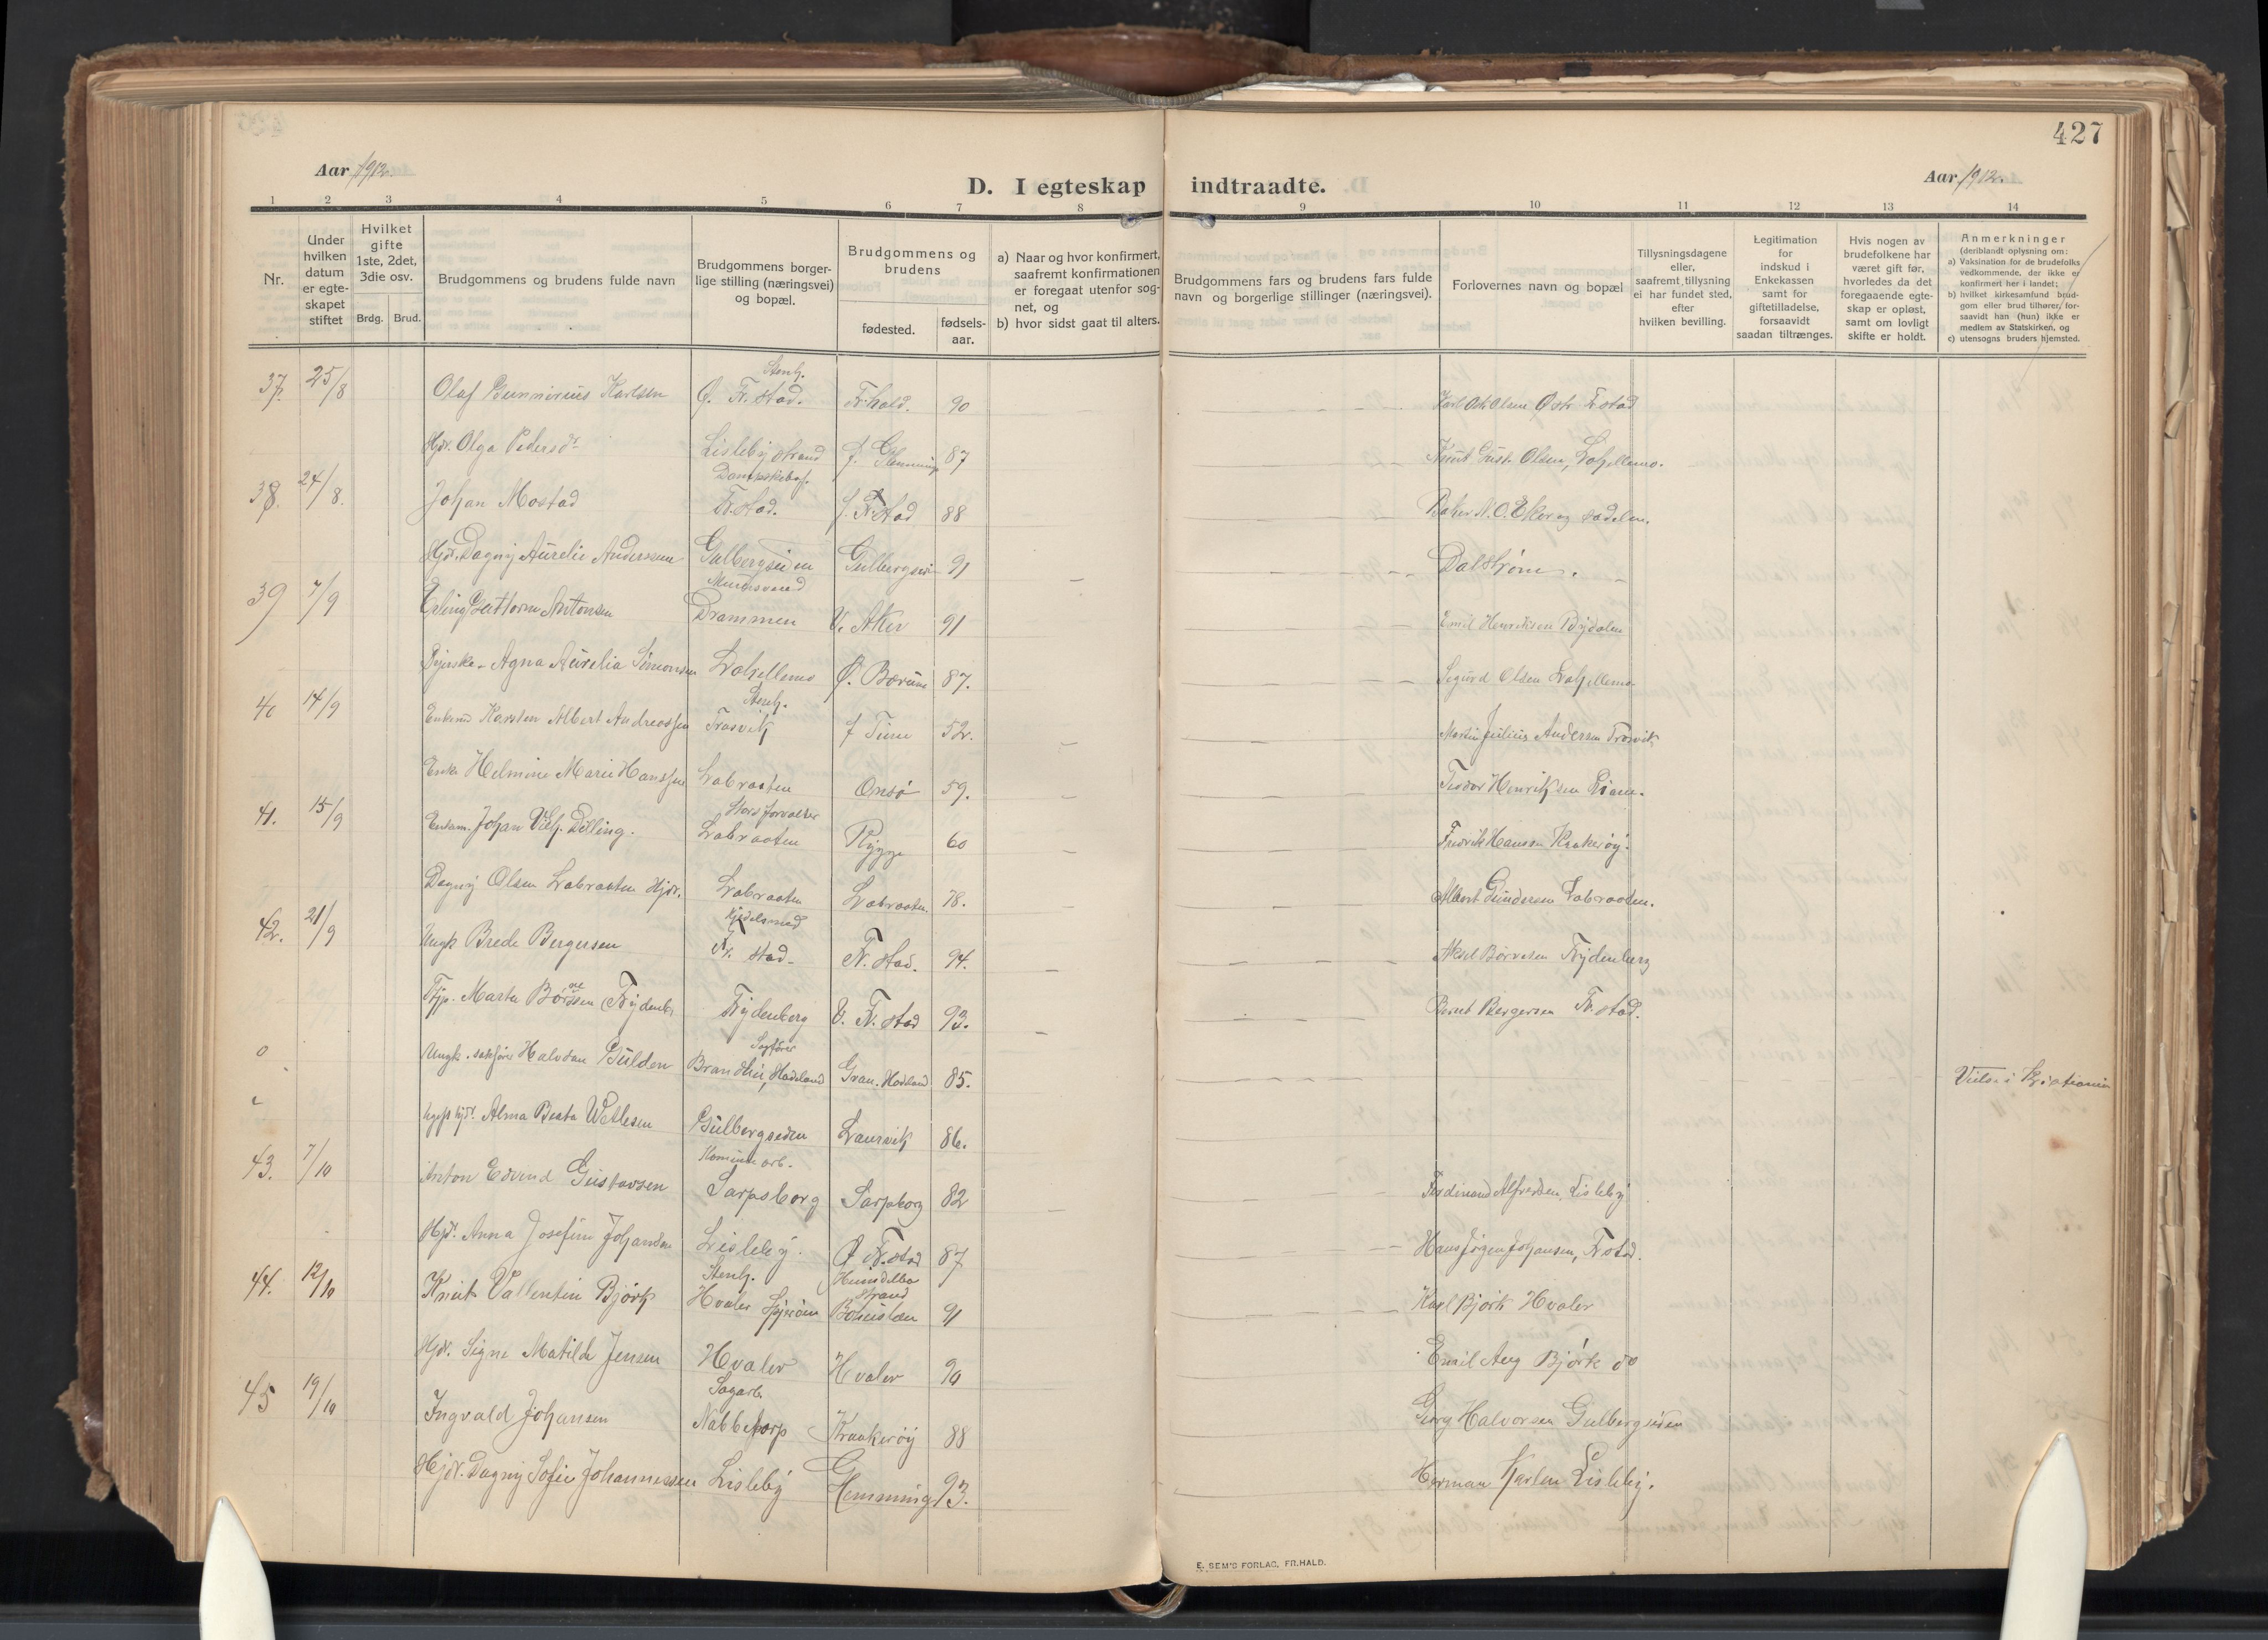 427
Aar 1912.
Aar 1912.
D. I egteskap indtraadte.
1 2 3 4 5 6 7 8 9 10 11 12 13 14
Nr.
Under hvilken datum er egte- skapet stiftet
Hvilket gifte 1ste, 2det, 3die osv.
Brdg. Brud.
Brudgommens og brudens fulde navn
Brudgommens borger- lige stilling (næringsvei) og bopæl.
Brudgommens og brudens
fødested. fødsels- aar.
a) Naar og hvor konfirmert, saafremt konfirmationen er foregaat utenfor sog- net, og
b) hvor sidst gaat til alters.
Brudgommens fars og brudens fars fulde navn og borgerlige stillinger (næringsvei).
Forlovernes navn og bopæl
Tillysningsdagene eller, saafremt tillysning ei har fundet sted, efter hvilken bevilling.
Legitimation for indskud i Enkekassen samt for giftetilladelse, forsaavidt saadan tiltrænges.
Hvis nogen av brudefolkene har været gift før, hvorledes da det foregaaende egte- skap er opløst, samt om lovligt skifte er holdt.
Anmerkninger (deriblandt oplysning om:
a) Vaksination for de brudefolks vedkommende, der ikke er konfirmert her i landet;
b) hvilket kirkesamfund brud- gom eller brud tilhører, for- saavidt han (hun) ikke er medlem av Statskirken, og
c) utensogns bruders hjemsted.
Stenh.
37. 25/8 Olaf Gunnerius Karlsen Ø. Fr.stad. Fr.hald. 90 Karl Osk Olsen Østr Frstad
Hjdr. Olga Pedersdr Lisleby strand f. Glemminge 87 Knut Gust. Olsen, Labellemo.
38. 24/8. Johan Mostad Fr.stad. f. Fr.stad 88
Hjdr. Dagny Aurelie Anderssen Gulbergsiden Gulbergsid 91 Dalstrøm.
39 7/9 Erling Guttorm Antonsen Drammen V. Aker 91 Emil Henriksen
Agna Aurelia Simonsen Labellemo Ø. Bærum 87. Sigurd Olsen Labellemo
Stenh.
40 14/9 Enkem Karsten Albert Andreassen Trosvik f Tune 52. Martin Julius Andersen Trosvik
Enke Helmine Marie Hanssen Labraaten Onsø 59. Teodor Henriksen
41. 15/9 Enkem. Johan Vilh. Dilling. Labraaten Rygge 60 Fredrik Hansen Krakerøy.
Dagny Olsen Labraaten Hjdr. Labraaten Labraaten. 78. Albert Gundersen Labraaten.
Kjedelsmed
42. 21/9 Ungk Brede Bergersen Fr. stad Fr. stad. 94. Aksel Børresen Frydenberg
Marta Børresen Frydenb. Frydenberg V. Fr. stad 93. Bernt Bergersen Fr. stad.
Sagfører
Ungk. sakfører Halvdan Gulden Brandbu, Hadeland Gran. Hadeland 85. Vielse i Kristiania
Alma Beata Wetlesen Gulbergsiden Laurvik 86.
Komune arb.
43. 7/10 Anton Edvind Gustavsen Sarpsborg Sarpsborg 82 Ferdinand Alfredsen, Lisleby
Hjdr. Anna Josefine Johansen Lisleby. Ø Fr.stad 87 Hans Jørgen Johansen, Frstad.
Stenh.
44. 12/10 Knut Vallentin Björk Hvaler Spjærøen Bohuslæn 91 Karl Björk Hvaler
Hjdr. Signe Matilde Jensen Hvaler Hvaler 90 Emil Aug Björk do
Sagarb.
45 19/10 Ingvald Johansen Nabbetorp Kraakerøy 88 Georg Halvorsen Gulbergsiden
Hjdr. Dagny Sofie Johannessen Lisleby Glemminge 93. Herman Karlsen Lisleby.
E. SEM'S FORLAG, FR.HALD.